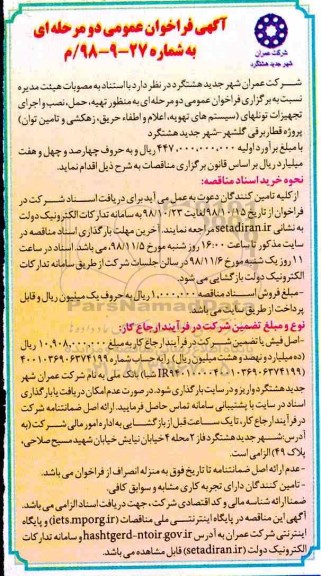 آگهی فراخوان عمومی دو مرحله‌ای
به شماره ۲۷-۹-۹۸/م
شرکت عمران
شهر جدید هشتگرد
شرکت عمران شهر جدید هشتگرد در نظر دارد با استناد به مصوبات هیئت مدیره
نسبت به برگزاری فراخوان عمومی دو مرحله‌ای به منظور تهیه، حمل، نصب و اجرای
تجهیزات تونلهای (سیستم های تهویه، اعلام و اطفاء حریق، زهکشی و تامین توان)
پروژه قطار برقی گلشهر-شهر جدید هشتگرد
با مبلغ برآورد اولیه ۴۴۷,۰۰۰,۰۰۰,۰۰۰ ریال و به حروف چهارصد و چهل و هفت
میلیارد ریال بر اساس قانون برگزاری مناقصات به شرح ذیل اقدام نماید.
نحوه خرید اسناد مناقصه:
از کلیه تامین کنندگان دعوت به عمل می آید برای دریافت اسناد شرکت در
فراخوان از تاریخ ۹۸/۱۰/۱۵ لغایت ۹۸/۱۰/۲۳ به سامانه تدارکات الکترونیک دولت
به نشانی setadiran.ir مراجعه نمایند. آخرین مهلت بارگذاری اسناد مناقصه در
سایت مذکور تا ساعت ۱۶:۰۰ روز شنبه مورخ ۹۸/۱۱/۵ می باشد. اسناد در ساعت
۱۱ روز یک شنبه مورخ ۹۸/۱۱/۶ در سالن جلسات شرکت از طریق سامانه تدارکات
الکترونیک دولت بازگشایی می شود.
-مبلغ فروش اسناد مناقصه ۱,۰۰۰,۰۰۰ ریال به حروف یک میلیون ریال و قابل
پرداخت از طریق سایت می باشد.
نوع و مبلغ تضمین شرکت در فرآیند ارجاع کار:
-اصل فیش یا تضمین شرکت در فرآیند ارجاع کار به مبلغ ۱۰,۹۰۸,۰۰۰,۰۰۰ ریال
(ده میلیارد و نهصد و هشت میلیون ریال) را به حساب شماره ۴۰۰۱۰۳۶۹۰۶۳۷۴۱۹۹
بانک ملی به نام شرکت عمران شهر
جدید هشتگرد واریز و در سایت بارگذاری شود. در صورت عدم امکان دریافت یا بارگذاری
اسناد در سایت با پشتیبانی سامانه تماس حاصل فرمایید. ارائه اصل ضمانتنامه شرکت
در فرآیند ارجاع کار، تا یک ساعت قبل از بازگشایی به اداره امور مالی شرکت (به
آدرس: شهر جدید هشتگرد فاز ۲ محله ۴ خیابان نیایش خیابان شهید مسیح صلاحی،
پلاک ۴۹) الزامی است.
-عدم ارائه اصل ضمانتنامه تا تاریخ فوق به منزله انصراف از فراخوان می باشد.
-تامین کنندگان دارای تجربه کاری مشابه و سوابق کافی.
ضمنا ارائه شناسه ملی و کد اقتصادی شرکت، جهت دریافت اسناد الزامی می باشد.
آگهی این مناقصه در پایگاه اینترنتی ملی مناقصات (iets.mporg.ir) و پایگاه
اینترنتی شرکت عمران به آدرس hashtgerd-ntoir.gov.ir و سامانه تدارکات
الکترونیک دولت (setadiran.ir) قابل مشاهده می باشد.